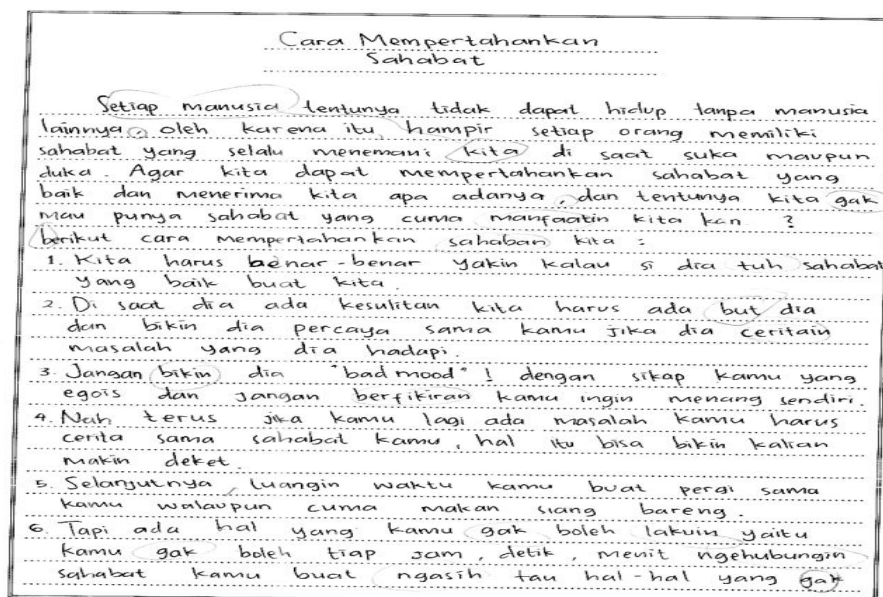 Cara Mempertahankan
Sahabat
Setiap manusia tentunya tidak dapat hidup tanpa manusia
lainnya, oleh karena itu hampir setiap orang memiliki
sahabat yang selalu menemani kita di saat suka maupun
duka. Agar kita dapat mempertahankan sahabat yang
baik dan menerima kita apa adanya, dan tentunya kita gak
mau punya sahabat yang cuma manfaatin kita kan ?
berikut cara mempertahankan sahaban kita :
1. Kita harus benar-benar yakin kalau si dia tuh sahabat
yang baik buat kita.
2. Di saat dia ada kesulitan kita harus ada but dia
dan bikin dia percaya sama kamu jika dia ceritain
masalah yang dia hadapi.
3. Jangan bikin dia "bad mood" ! dengan sikap kamu yang
egois dan jangan berfikiran kamu ingin menang sendiri.
4. Nah terus jika kamu lagi ada masalah kamu harus
cerita sama sahabat kamu, hal itu bisa bikin kalian
makin deket.
5. Selanjutnya, luangin waktu kamu buat pergi sama
kamu walaupun cuma makan siang bareng.
6. Tapi ada hal yang kamu gak boleh lakuin yaitu
kamu gak boleh tiap jam, detik, menit ngehubungin
sahabat kamu buat ngasih tau hal-hal yang gak